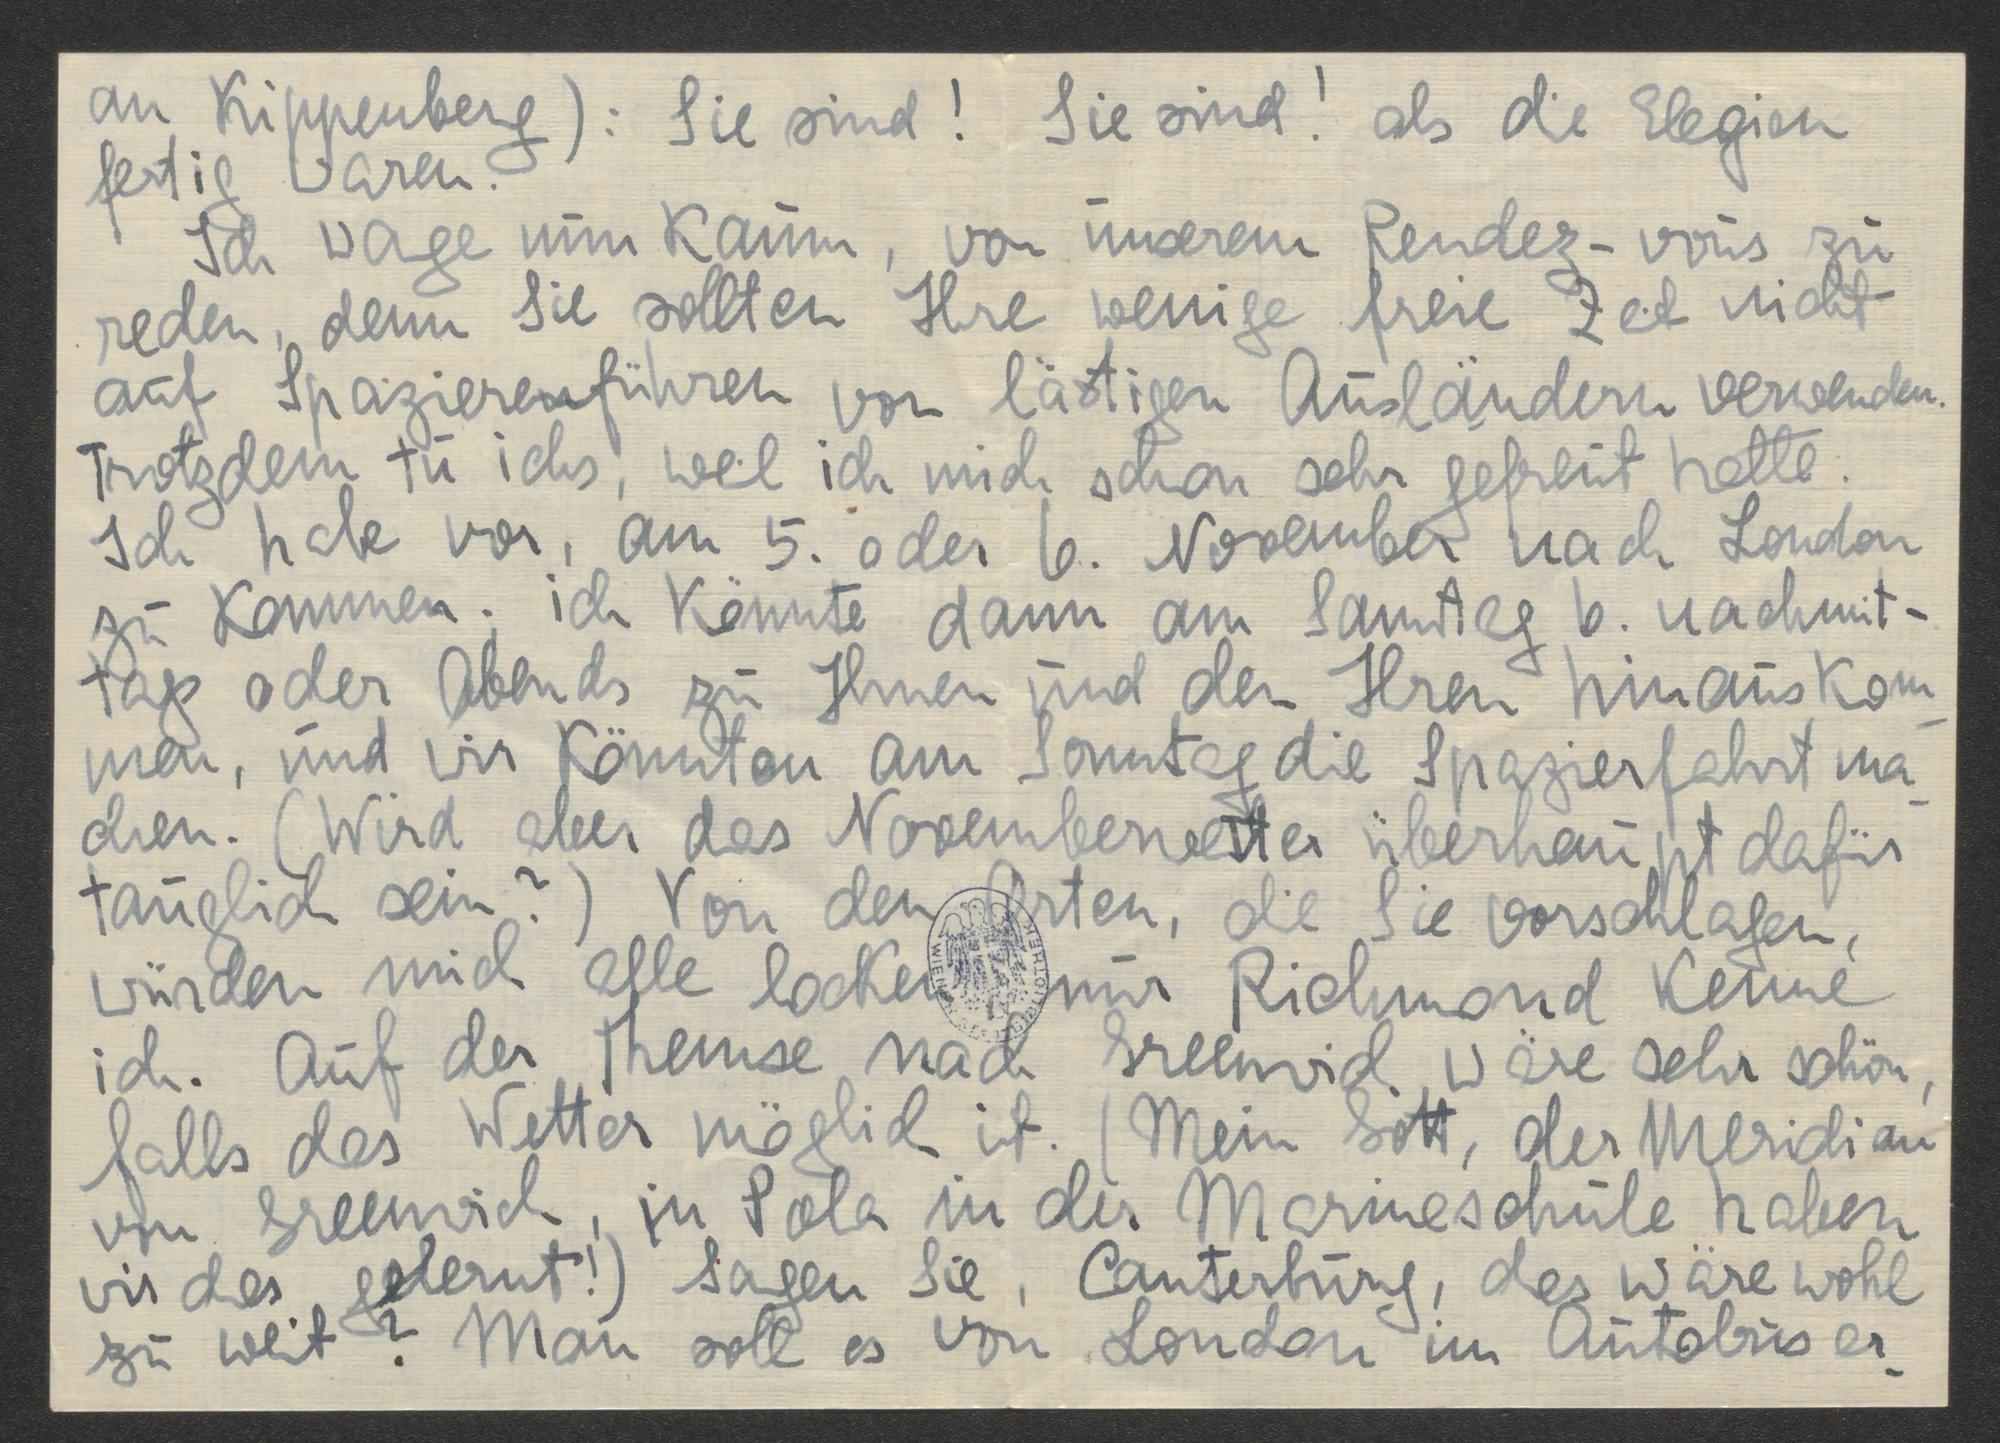 an Kippenberg): Sie sind! Sie sind! als die Elegien
fertig waren.
Ich wage nun kaum, von unserem Rendez-vous zu
reden, denn Sie sollten Ihre wenige freie Zeit nicht
auf Spazierenführen von lästigen Ausländern verwenden.
Trotzdem tu ichs, weil ich mich schon sehr gefreut hatte.
Ich habe vor, am 5. oder 6. November nach London
zu kommen. ich könnte dann am Samstag 6. nachmit-
tag oder Abends zu Ihnen und den Ihren hinauskom-
men, und wir könnten am Sonntag die Spazierfahrt ma-
chen. (Wird aber das Novemberwetter überhaupt dafür
tauglich sein?) Von den Orten, die Sie vorschlagen,
würden mich alle locken, nur Richmond kenne
ich. Auf der Themse nach Greenwich wäre sehr schön,
falls das Wetter möglich ist. (Mein Gott, der Meridian
von Greenwich, in Pola in der Marineschule haben
wir das gelernt!) Sagen Sie, Canterbury, das wäre wohl
zu weit? Man soll es von London im Autobus er-
WIEN